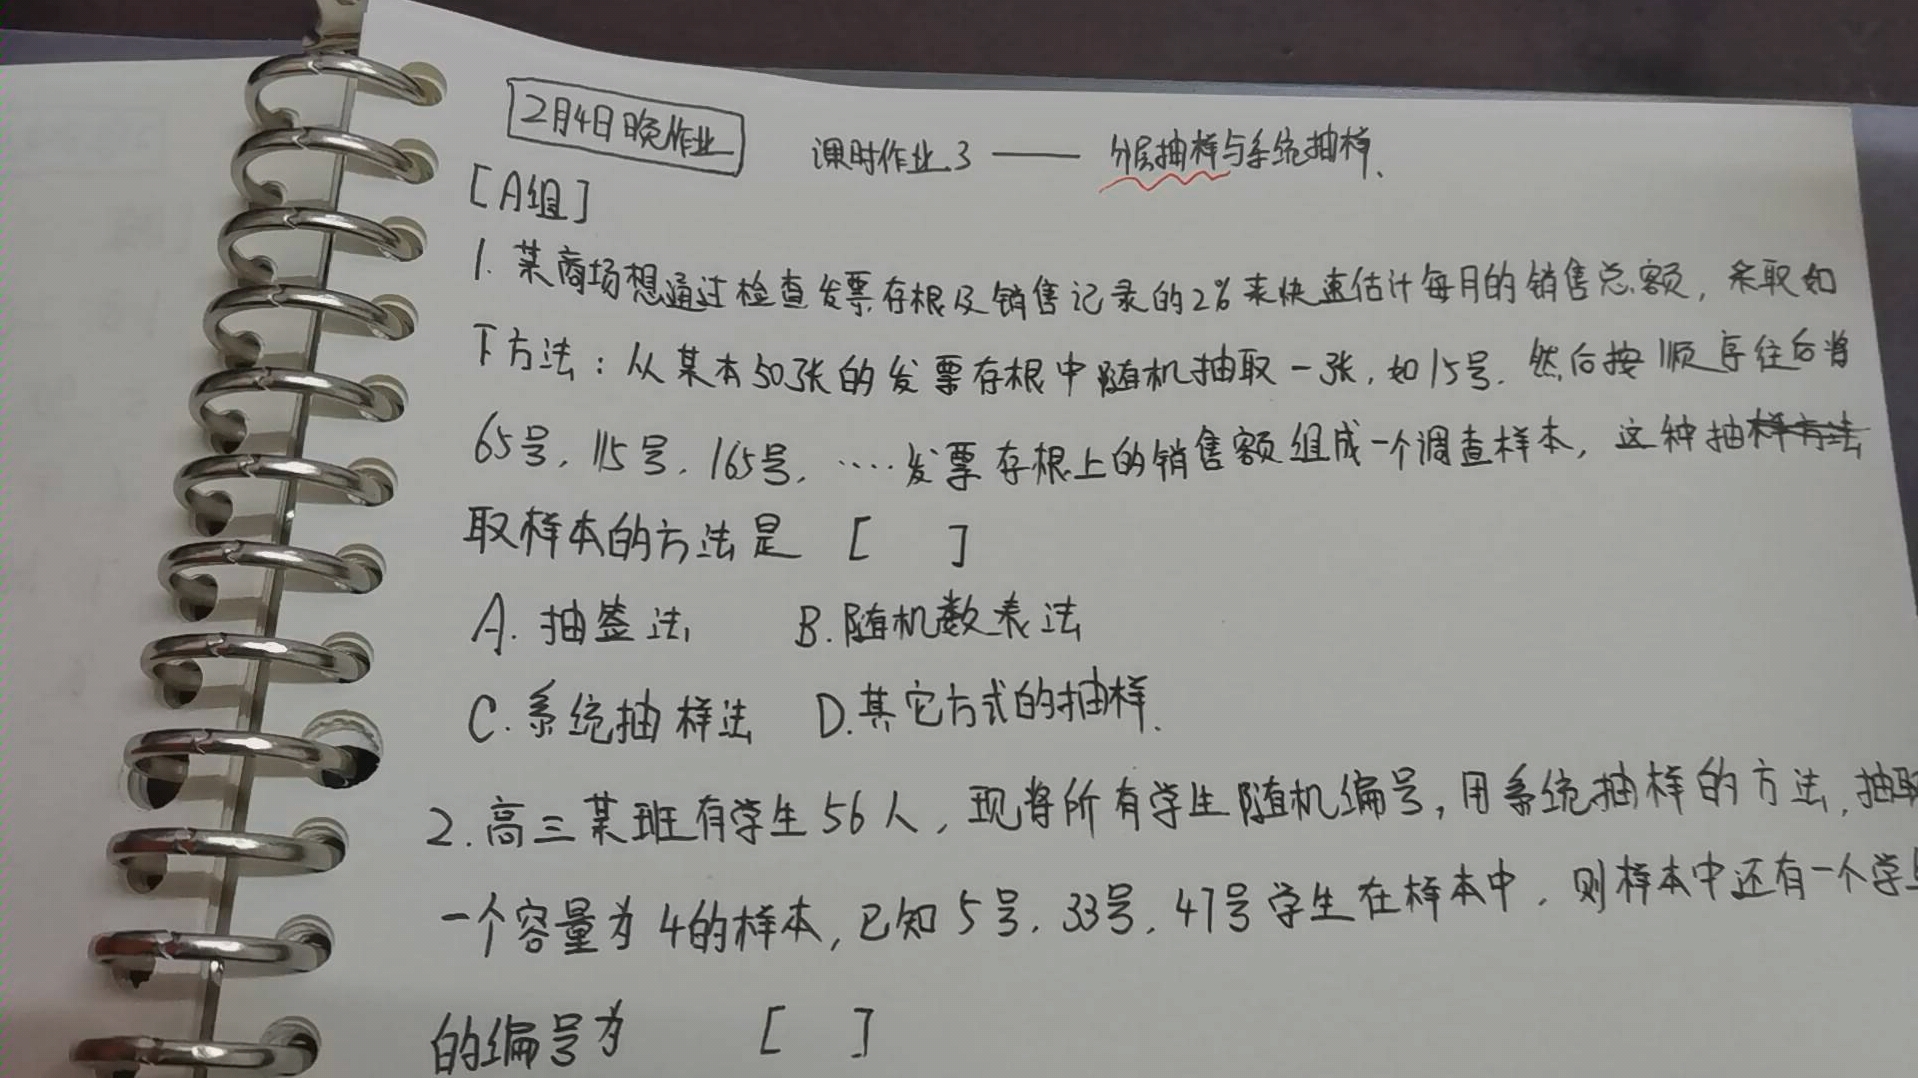 2月4日晚作业
课时作业3 —— 分层抽样与系统抽样.
[A组]
1. 某商场想通过检查发票存根及销售记录的2%来快速估计每月的销售总额, 采取如
下方法: 从某本50张的发票存根中随机抽取一张, 如15号. 然后按顺序往后将
65号, 115号, 165号, ····发票存根上的销售额组成一个调查样本, 这种抽样方法
取样本的方法是 [ ]
A. 抽签法 B. 随机数表法
C. 系统抽样法 D. 其它方式的抽样.
2. 高三某班有学生56人, 现将所有学生随机编号, 用系统抽样的方法, 抽取
一个容量为4的样本, 已知5号, 33号, 47号学生在样本中, 则样本中还有一个学
的编号为 [ ]